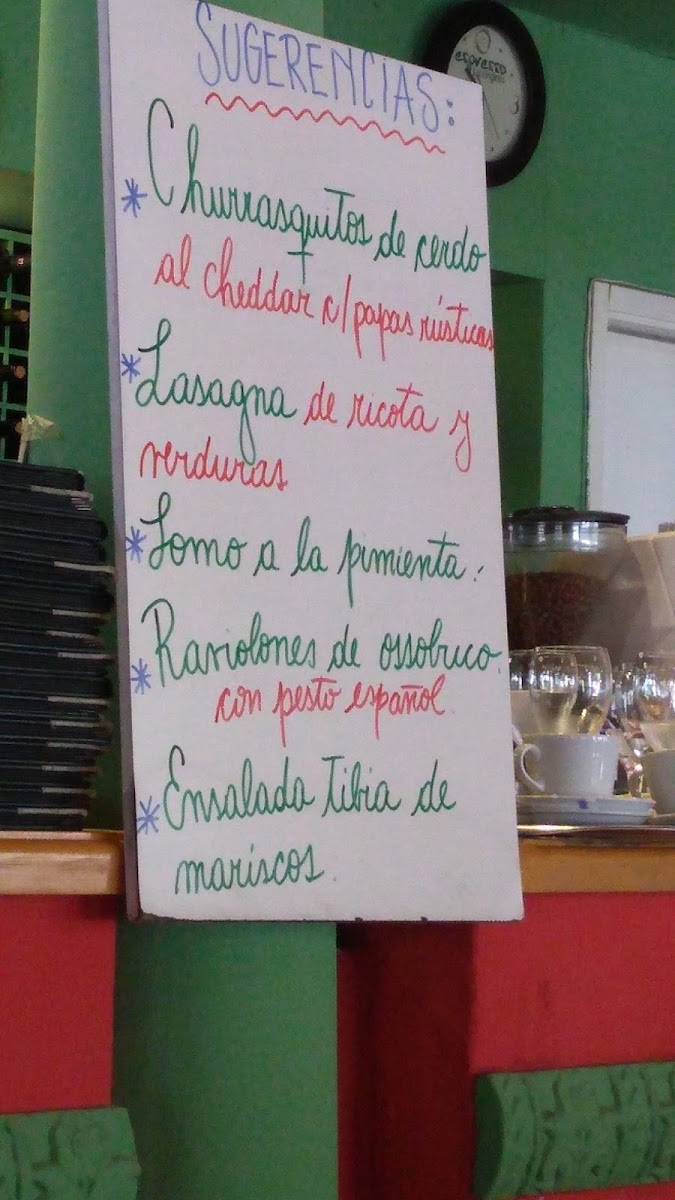 SUGERENCIAS:
* Churrasquitos de cerdo
al cheddar c/papas rústicas
* Lasagna de ricota y
verduras
* Lomo a la pimienta.
* Raviolones de ossobuco.
con pesto español
* Ensalada tibia de
mariscos.
espresso
3